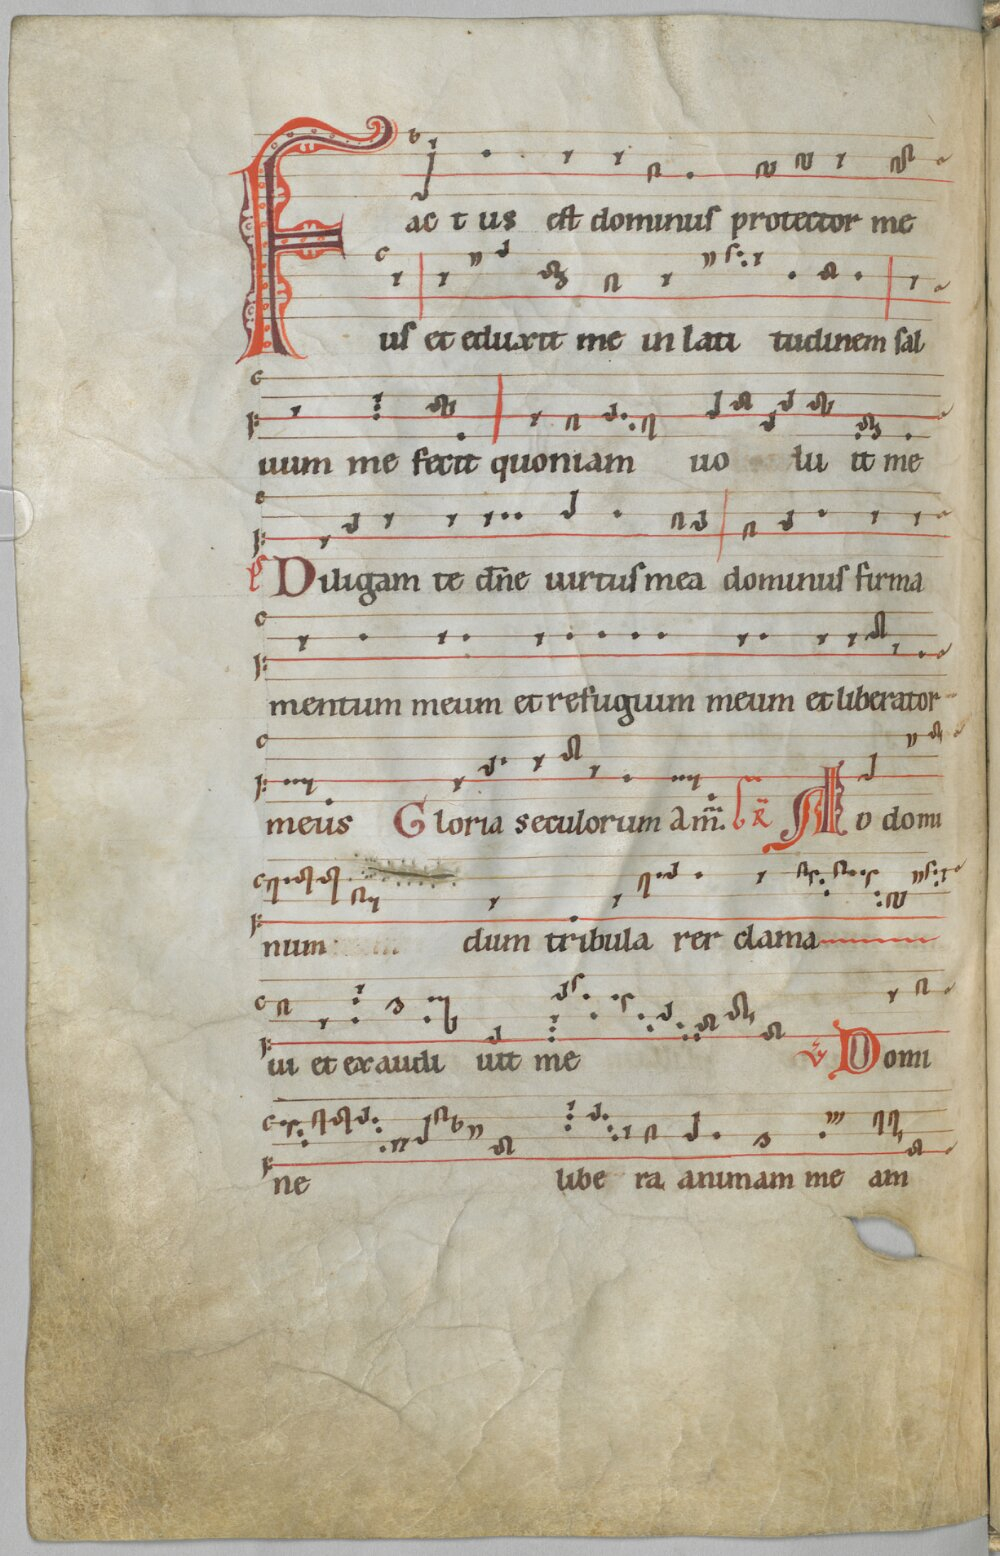 Fac t us est dominus protector me
us et eduxit me in lati tudinem sal
uum me fecit quoniam uo lu it me
Diligam te dne uirtus mea dominus firma
mentum meum et refugium meum et liberator
meus Gloria seculorum am. Ad domi
num dum tribula rer clama
ui et exaudi uit me Domi
ne libe ra animam me am